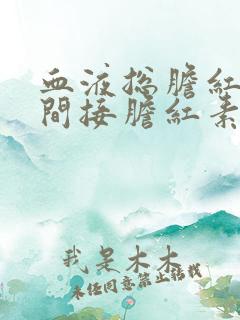 血液总膽紅
間接膽紅素
我是木木
未經同意禁止搭載